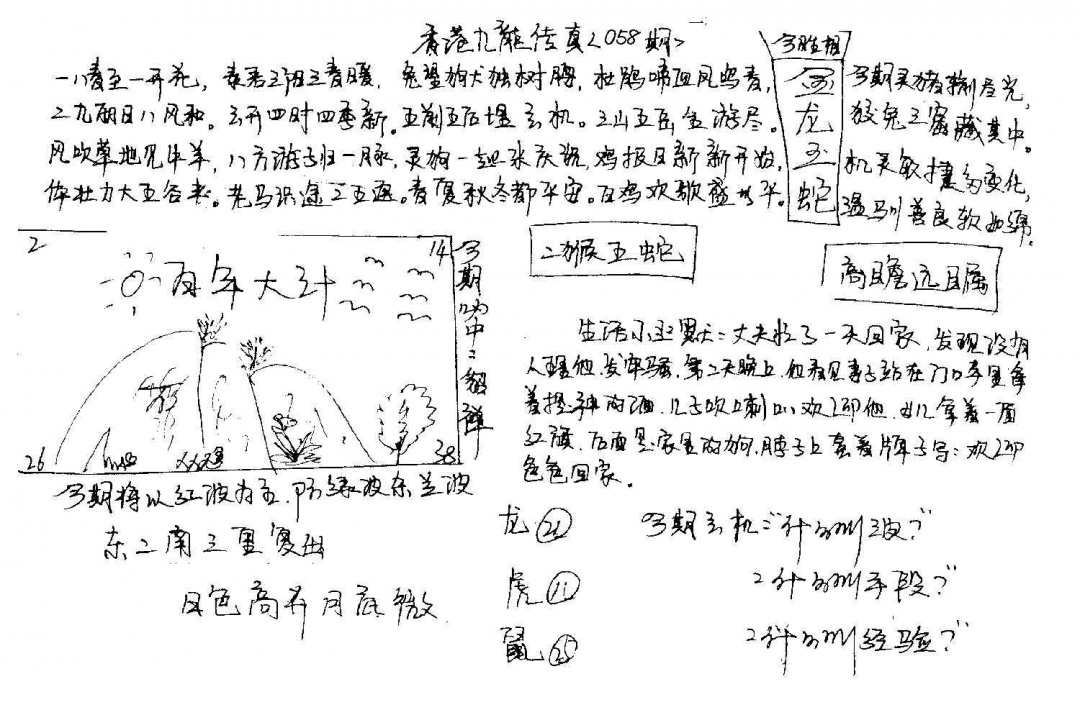 香港九龍传真<058期>
一八春至一开花，春君三阳三春暖，兔望狗犬独树膀，杜鹃啼血凤鸣春，
二九朝日八风和。云开四时四季新。五前五后埋玄机。三山五岳全游尽。
风吹草地见牛羊，八方游子归一脉，灵狗一起来庆祝，鸡报日新新开始，
体壮力大五谷来。老马识途三五遍。春夏秋冬都平安。百鸡欢歌盛太平。
今期灵猪剃尽光，
狡兔三窟藏其中。
机灵敏捷多变化，
温驯善良软如绵。
今胜相
金龙玉蛇
二猴五蛇
高瞻远瞩
2
14
百年大计
26
38
今期吟中：
今期将以红波为主，防绿波东兰波
东二南三里复出
日色高升月底微
生活小幽默：丈夫忙了一天回家，发现没有
人理他，发牢骚，第二天晚上，他看见妻子站在门口手里拿
着提神的酒，儿子吹喇叭欢迎他，女儿拿着一面
红旗，后面是家里的狗，脖子上套着牌子写：欢迎
爸爸回家。
龙
虎 11
鼠 25
今期玄机：什么叫波？
2什么叫手段？
2什么叫经验？